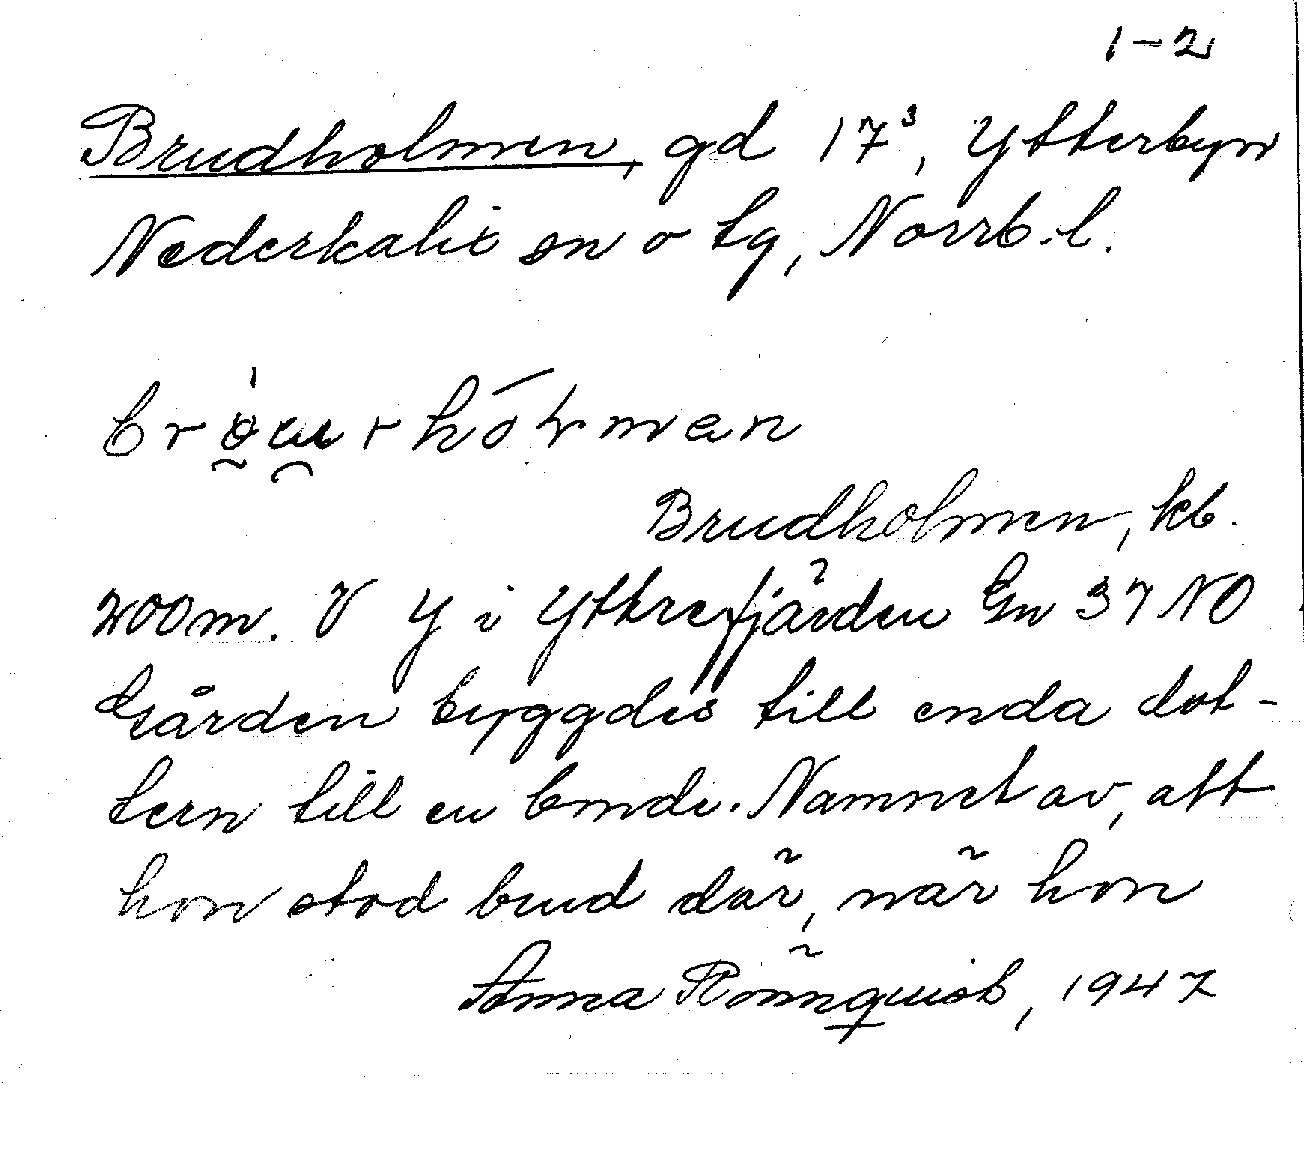 1-2
Brudholmen, gd 17³, Ytterbyn
Nederkalix sn o tg, Norrb.l.
Brudholmen, kb.
200m. V Y i Yttrefjärden Gn 37 NO
Gården byggdes till enda dot-
tern till en bonde. Namnet av, att
hon stod brud där, när hon
Anna Rönnquist, 1947